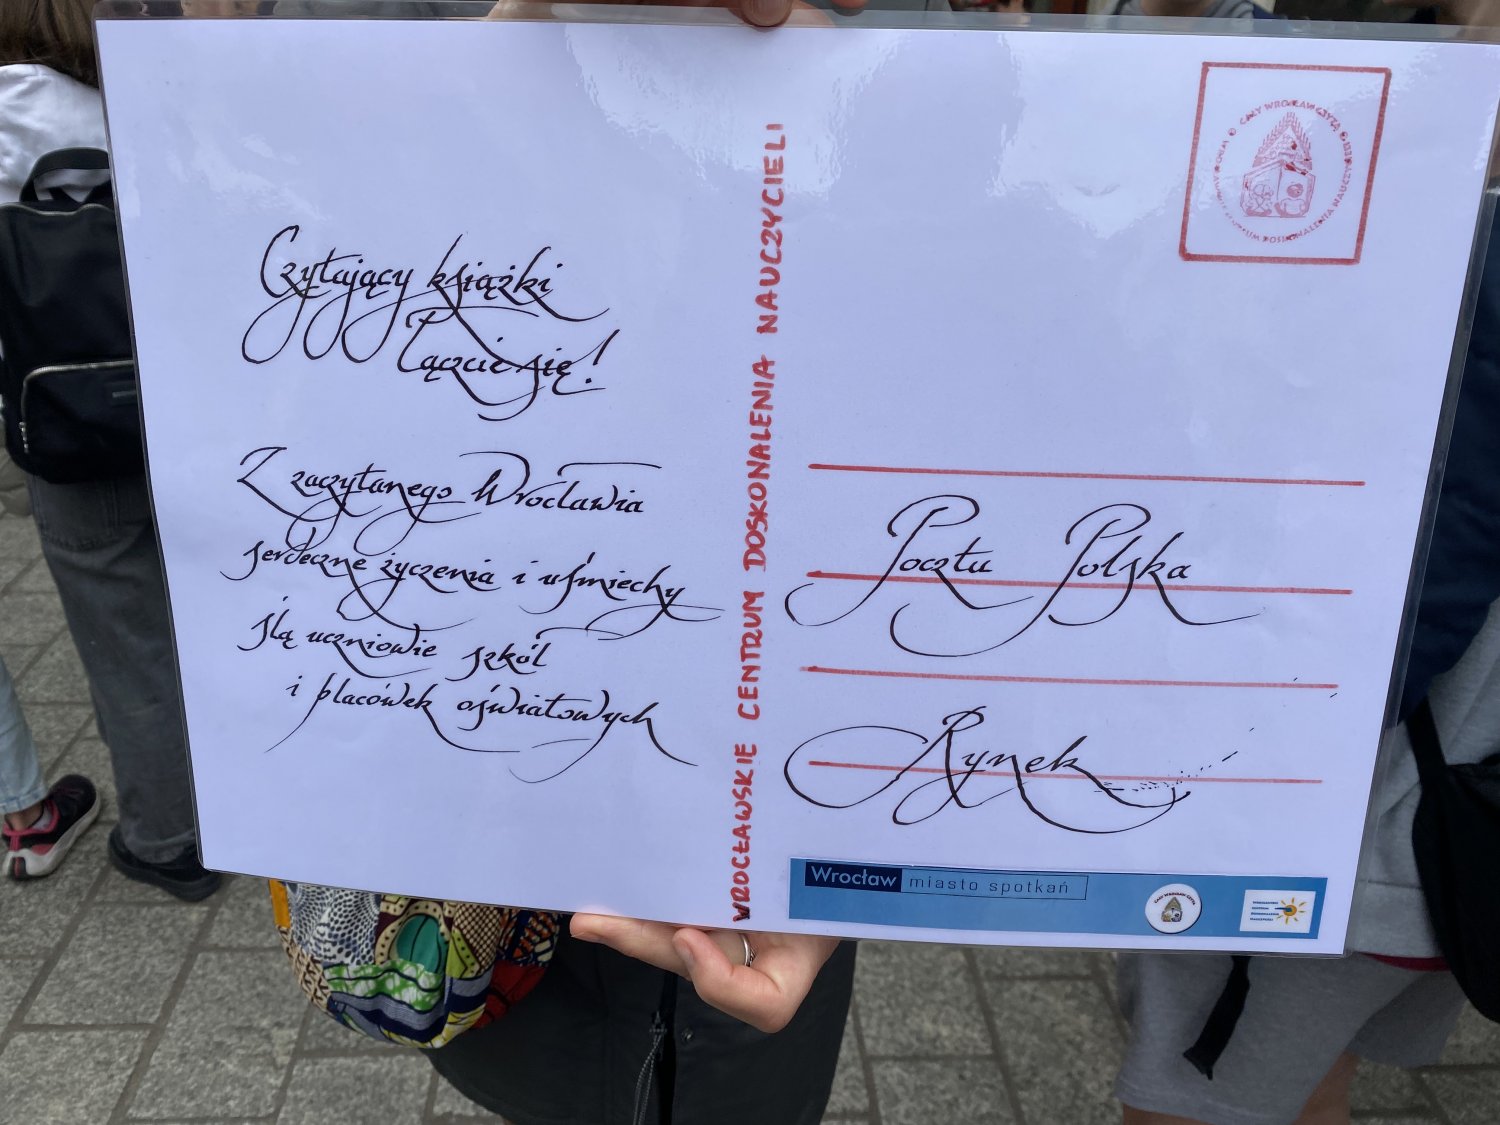 Czytający książki
Łączcie się!
Z zaczytanego Wrocławia
serdeczne życzenia i uśmiechy
ślą uczniowie szkół
i placówek oświatowych
WROCŁAWSKIE CENTRUM DOSKONALENIA NAUCZYCIELI
CAŁY WROCŁAW CZYTA
Poczta Polska
Rynek
Wrocław miasto spotkań